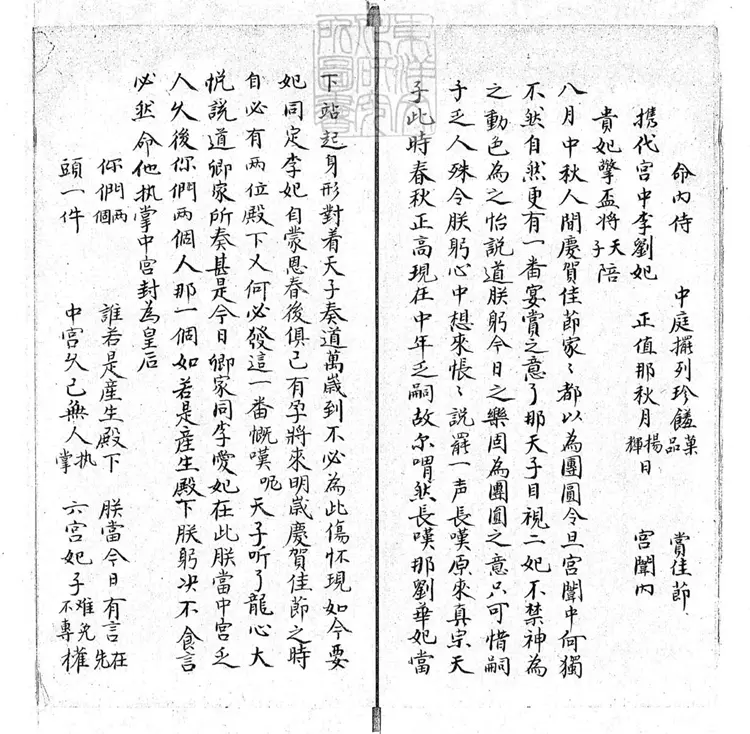 命內侍　中庭擺列珍饈菓品　賞佳節
携代宮中李劉妃　正值那秋月揚輝日　宮闈內
貴妃擎盃將天子陪
八月中秋人間慶賀佳節家〻都以為團圓今旦宮闈中何獨
不然自然更有一番宴賞之意了那天子目視二妃不禁神為
之動色為之怡說道朕躬今日之樂固為團圓之意只可惜嗣
子乏人殊令朕躬心中想來悵〻說罷一声長嘆原來真宗天
子此時春秋正高現在中年乏嗣故尔喟然長嘆那劉華妃當
下站起身形對着天子奏道萬歲到不必為此傷懷現如今要
妃同定李妃自蒙恩春後俱已有孕將來明歲慶賀佳節之時
自必有兩位殿下又何必發這一番慨嘆呢天子听了龍心大
悅說道卿家所奏甚是今日卿家同李愛妃在此朕當中宮乏
人久後你們兩個人那一個如若是產生殿下朕躬决不食言
必然命他执掌中宮封為皇后
你們兩個　誰若是產生殿下　朕當今日有言在先
頭一件　中宮久已無人执掌　六宮妃子难免不專權
東洋文化研究所圖書